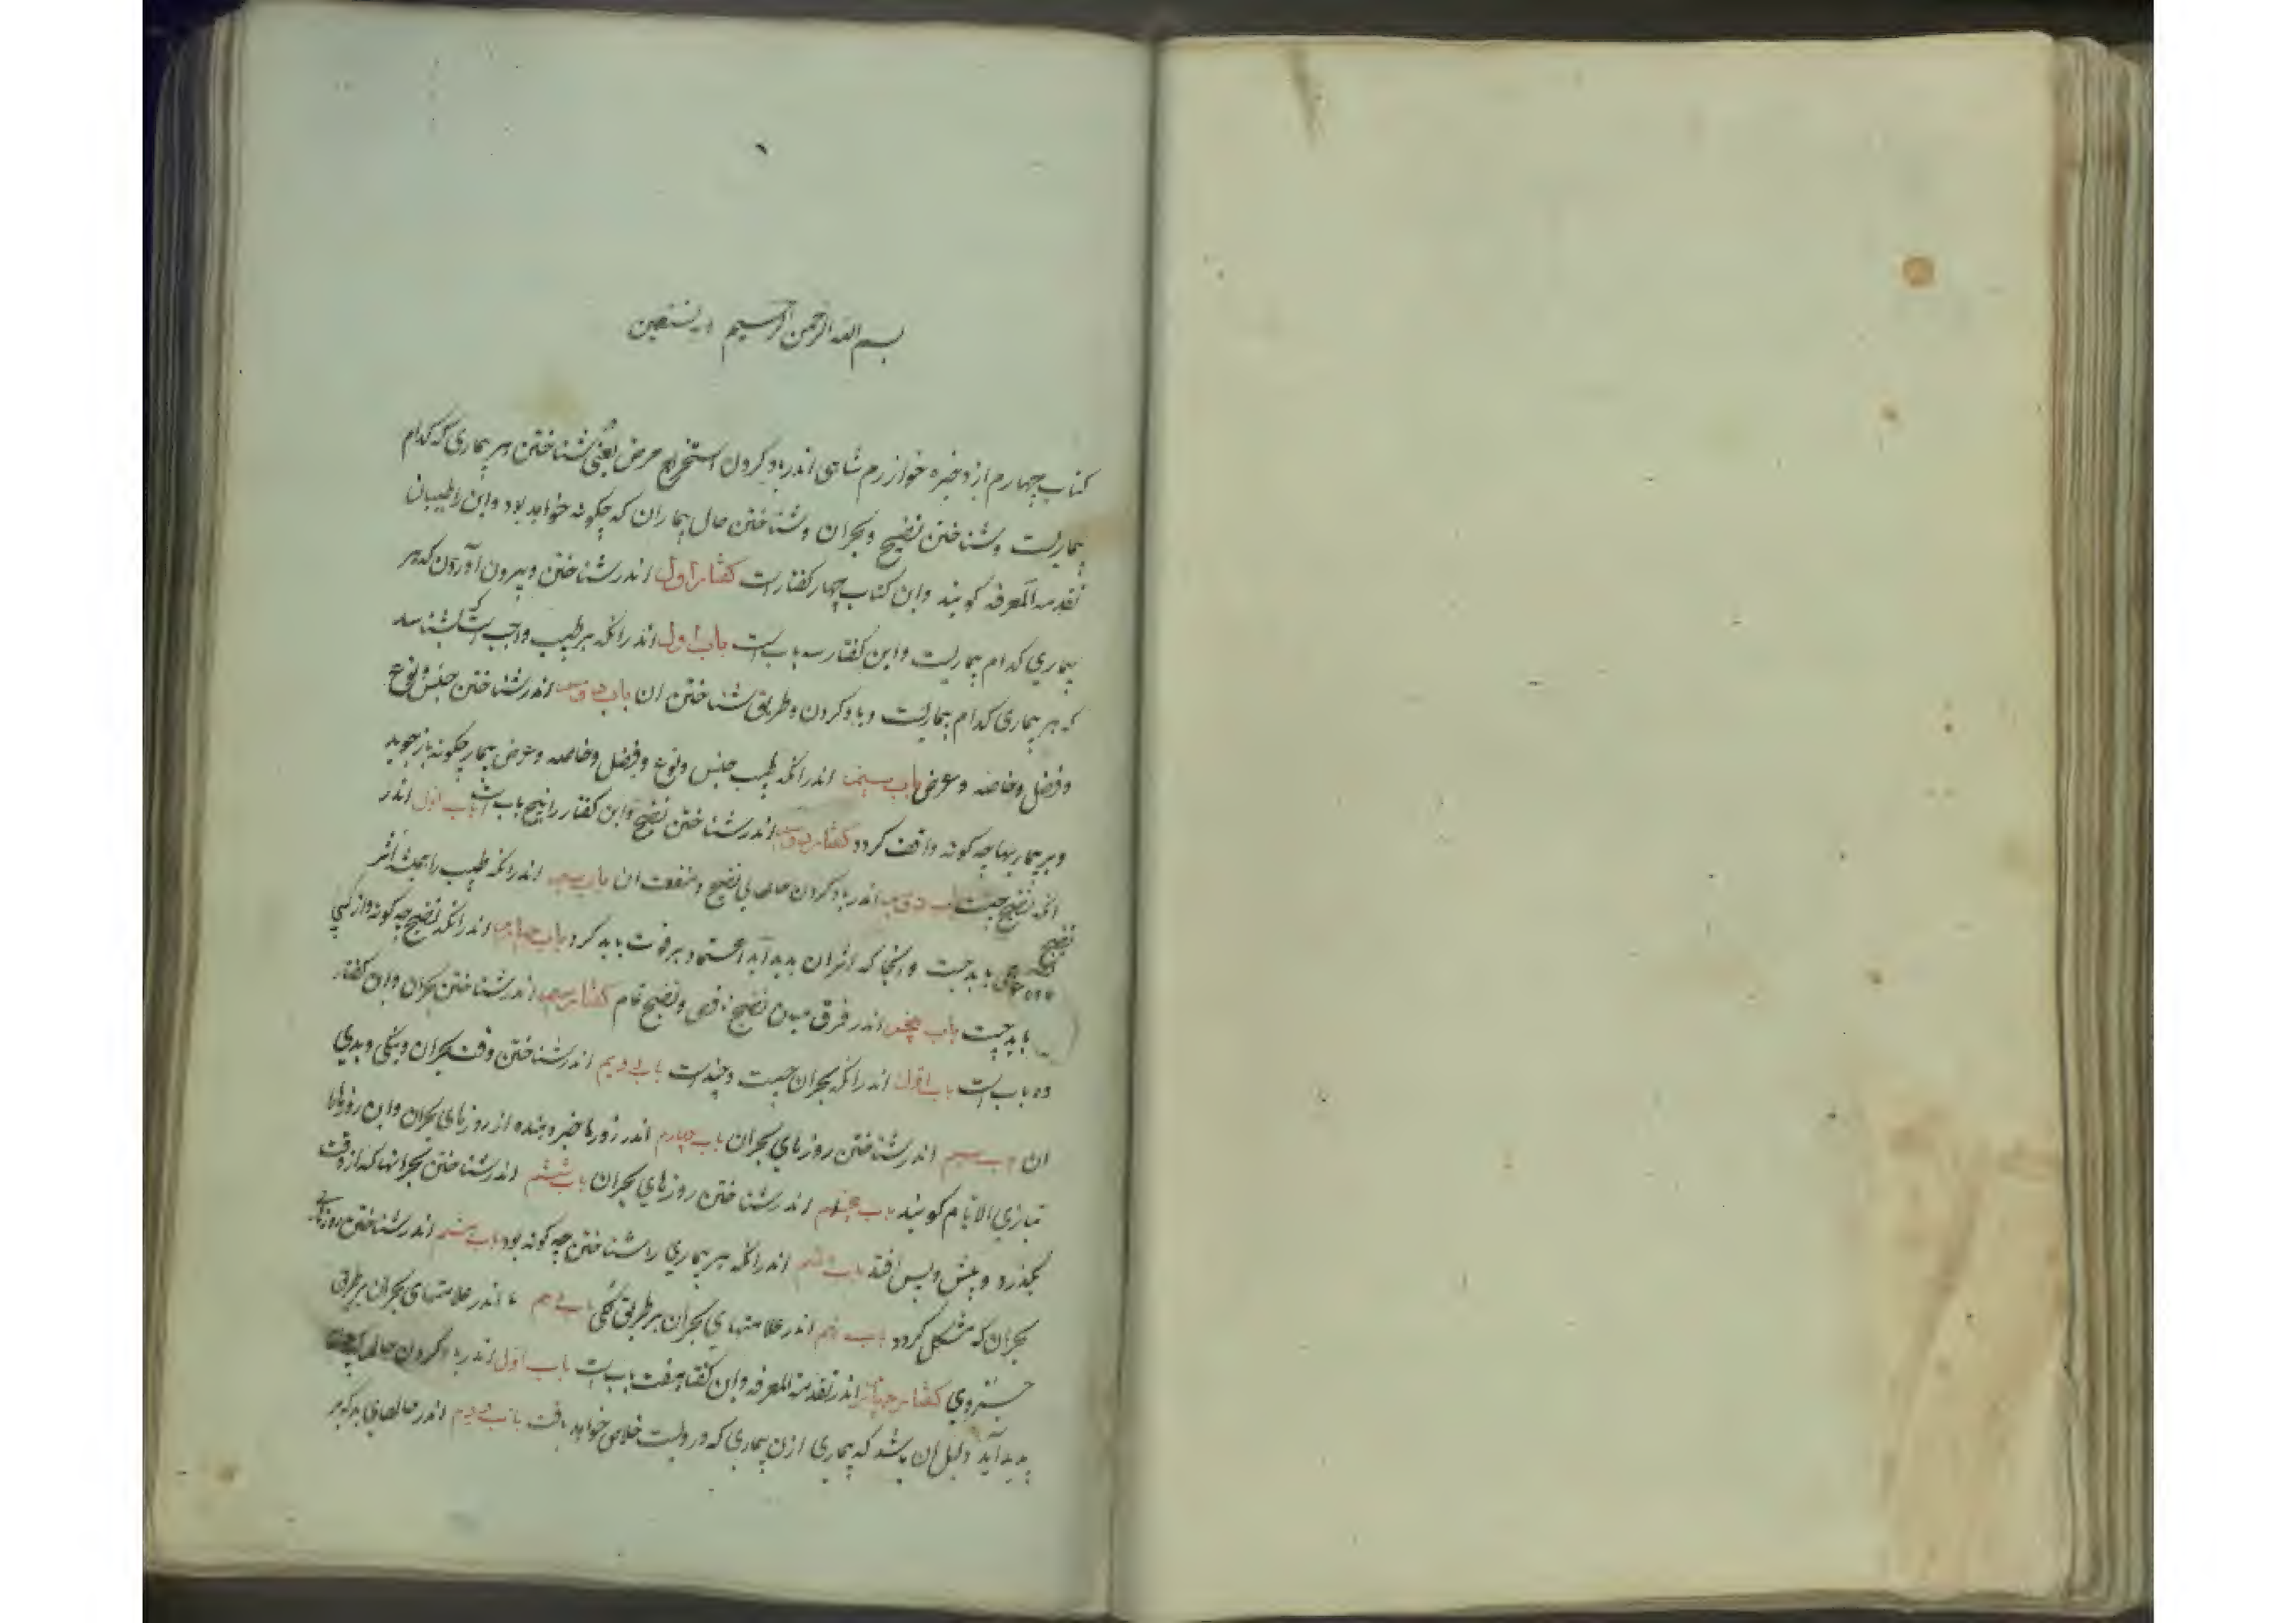 بسم الله الرحمن الرحیم و به نستعین
کتاب چهارم از ذخیره خوارزم شاهی اندر یاد کردن استخراج مرض یعنی شناختن هر بیماری که کدام
بیماریست و شناختن نضج و بحران و شناختن حال بیماران که چکونه خواهد بود و این را طبیبان
تقدمه المعرفه کویند و این کتاب چهار کفتارست کفتار اول اندر شناختن و بیرون آوردن که هر
بیماری کدام بیماریست و این کفتار سه باب است باب اول اندر انکه بر طبیب واجب است که بشناسد
که هر بیماری کدام بیماریست و یاد کردن و طریق شناختن ان باب دوم اندر شناختن جنس و نوع
و فصل و خاصه و عرض باب سیم اندر انکه طبیب جنس و نوع و فصل و خاصه و عرض بیمار چکونه باز جوید
و بر بیماریها چه کونه واقف کردد کفتار دوم اندر شناختن نضج و این کفتار را پنج باب است باب اول اندر
انکه نضج چیست باب دوم اندر یاد کردن حالهای نضج و منفعت ان باب سیم اندر انکه طبیب را همیشه اثر
نضج
باید جست و انجا که اثر ان بدید آید اعتماد بر قوت باید کرد باب چهارم اندر انکه نضج چه کونه و از کجا
باید جست باب پنجم اندر فرق میان نضج ناقص و نضج تمام کفتار سیم اندر شناختن بحران و این کفتار
ده باب است باب اول اندر انکه بحران چیست و چندست باب دویم اندر شناختن وقت بحران و نیکی و بدی
ان باب سیم اندر شناختن روزهای بحران باب چهارم اندر روزها خبر دهنده از روزهای بحران و این روزها را
بتازی الایام کویند باب پنجم اندر شناختن روزهای بحران باب ششم اندر شناختن بحرانها که از وقت
بکذرد و پیش و پس افتد باب هفتم اندر انکه هر بیماری را شناختن چه کونه بود باب هشتم اندر شناختن روزهای
بحران که مشکل کردد باب نهم اندر علامتهای بحران بر طریق کلی باب دهم اندر علامتهای بحران بر طریق
جزوی کفتار چهارم اندر تقدمة المعرفه و این کفتار هفت باب است باب اول اندر یاد کردن
بدید آید دلیل ان باشد که بیماری ازن بیماری که در ویست خلاص خواهد یافت باب دویم اندر حالهای بد که بر